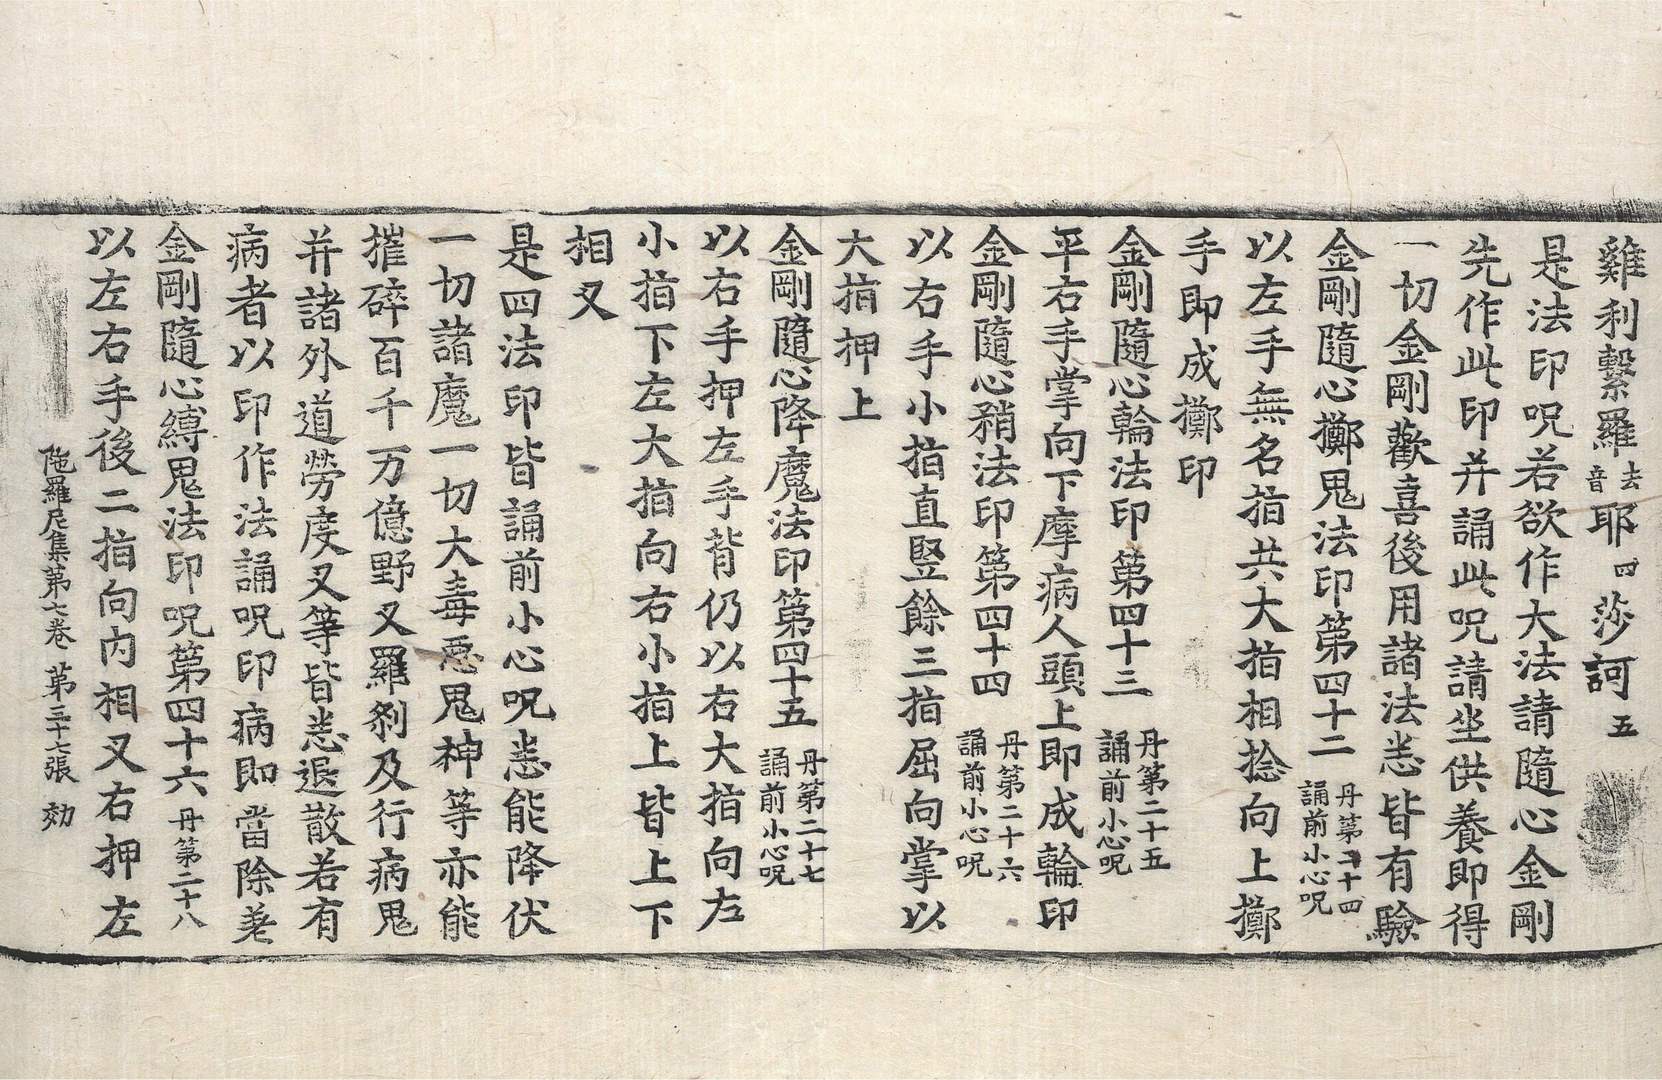 雞利繫羅去音耶四莎訶五
是法印呪若欲作大法請隨心金剛
先作此印并誦此呪請坐供養即得
一切金剛歡喜後用諸法悉皆有驗
金剛隨心擲鬼法印第四十二丹第二十四誦前小心呪
以左手無名指共大指相捻向上擲
手即成擲印
金剛隨心輪法印第四十三丹第二十五誦前小心呪
平右手掌向下摩病人頭上即成輪印
金剛隨心矟法印第四十四丹第二十六誦前小心呪
以右手小指直竪餘三指屈向掌以
大指押上
金剛隨心降魔法印第四十五丹第二十七誦前小心呪
以右手押左手背仍以右大指向左
小指下左大指向右小指上皆上下
相叉
是四法印皆誦前小心呪悉能降伏
一切諸魔一切大毒惡鬼神等亦能
摧碎百千万億野叉羅剎及行病鬼
并諸外道勞度叉等皆悉退散若有
病者以印作法誦呪印病即當除差
金剛隨心縛鬼法印呪第四十六丹第二十八
以左右手後二指向內相叉右押左
陁羅尼集第七卷 第三十七張 効